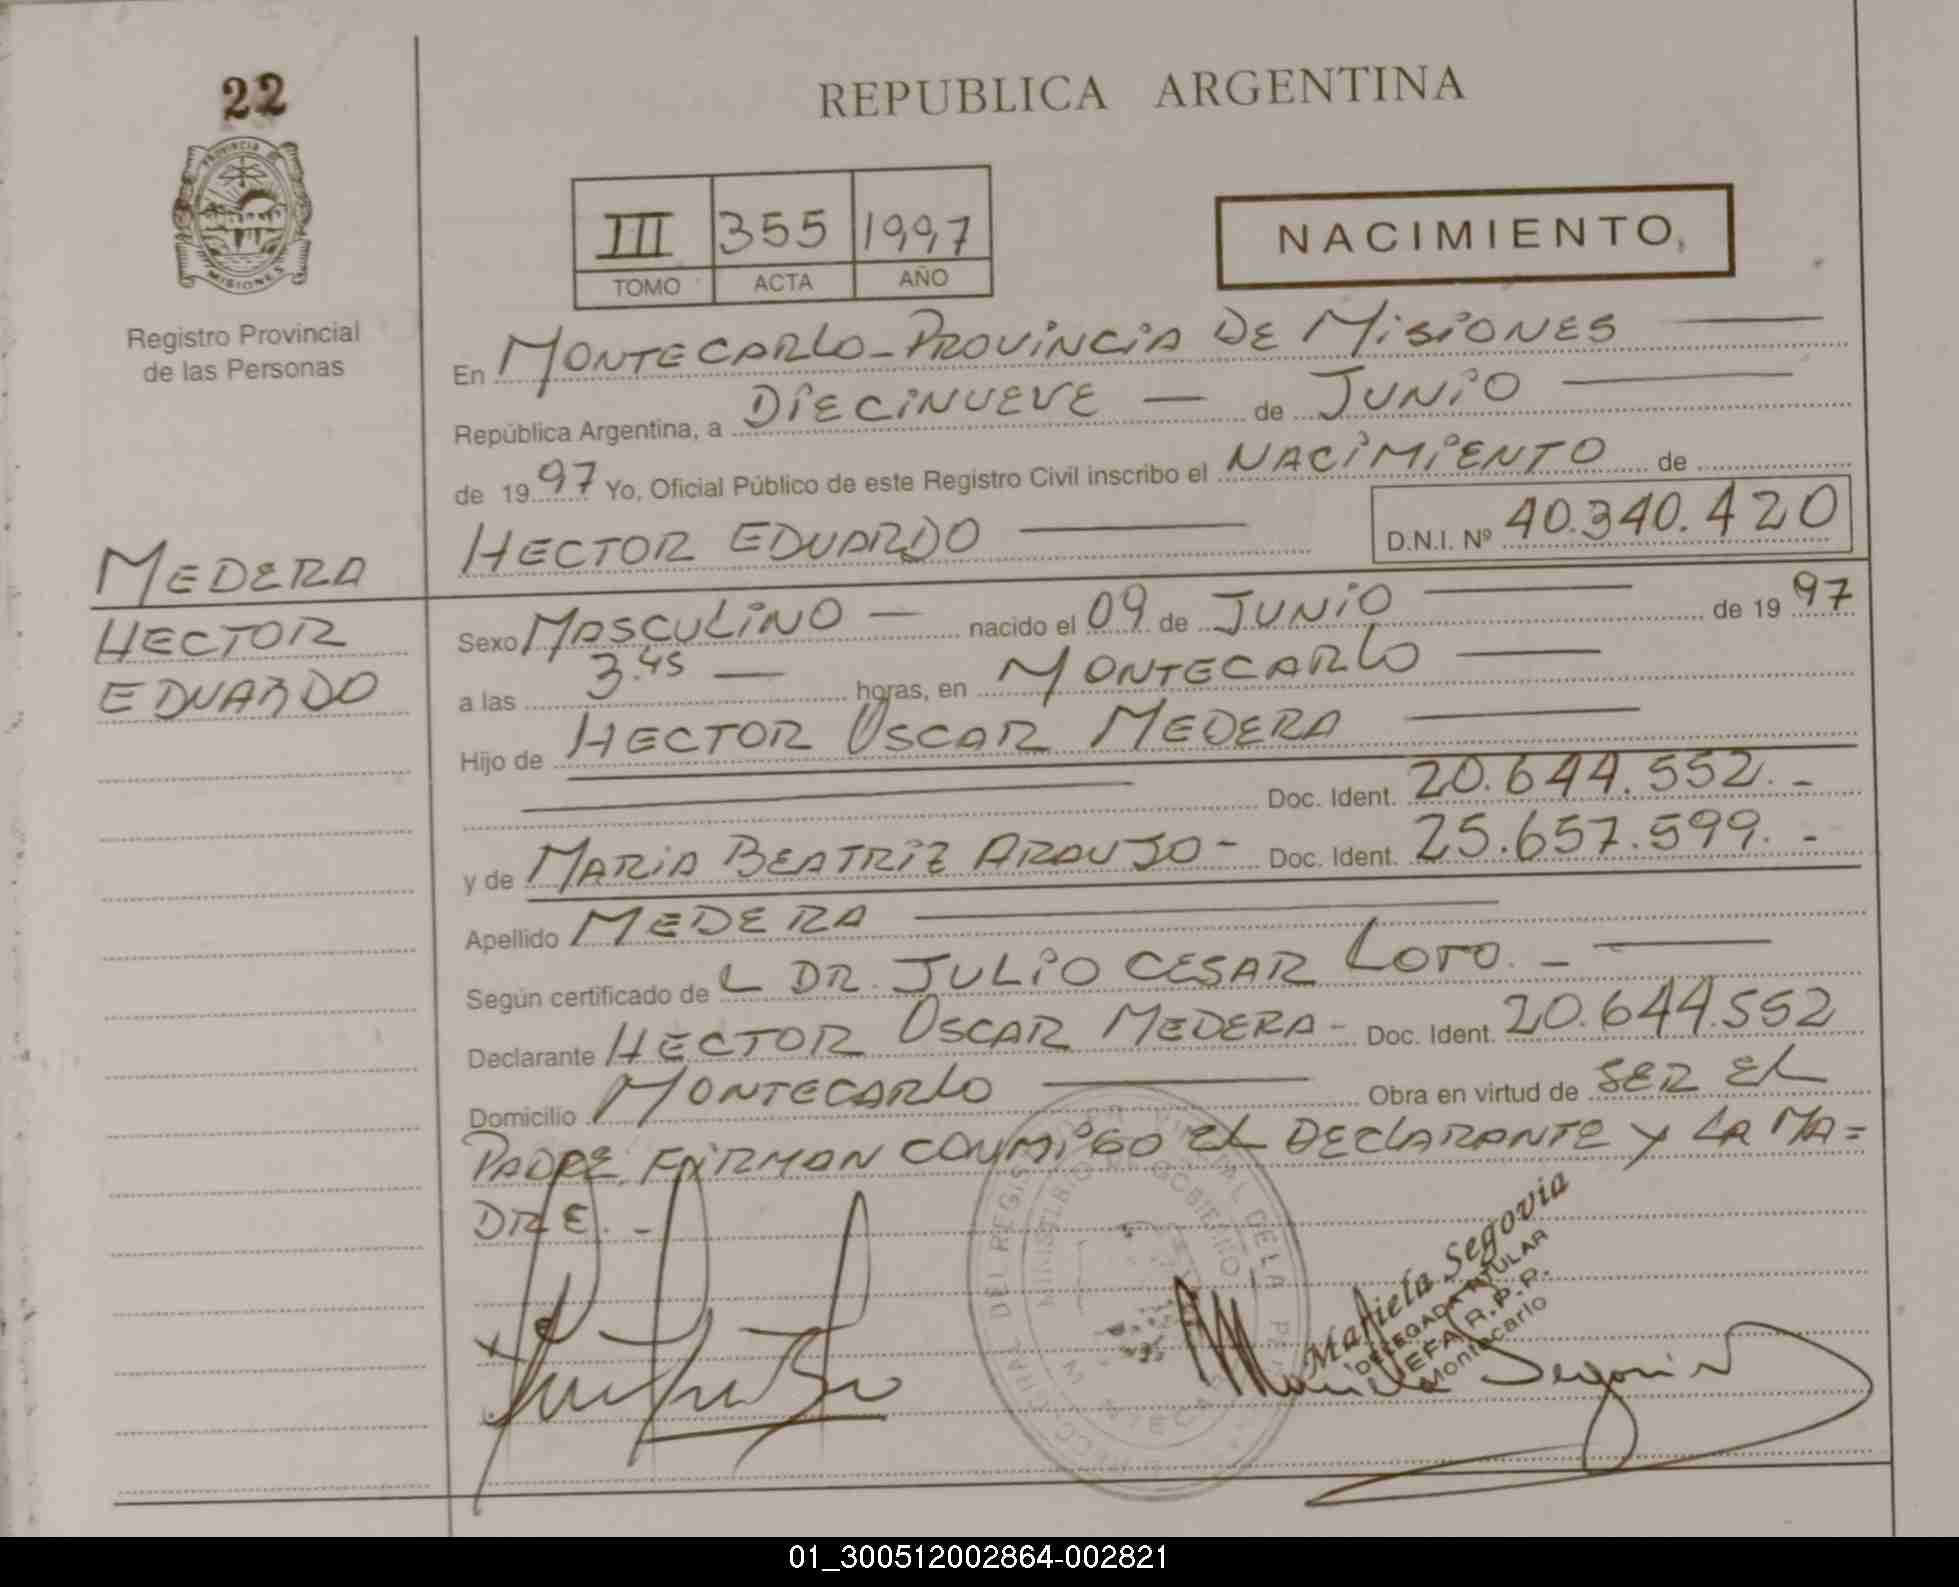 22
REPUBLICA ARGENTINA
PROVINCIA DE
MISIONES
Registro Provincial
de las Personas
III 355 1997
TOMO ACTA AÑO
NACIMIENTO
En MONTECARLO - PROVINCIA DE MISIONES
República Argentina, a DIECINUEVE — de JUNIO
de 1997 Yo, Oficial Público de este Registro Civil inscribo el NACIMIENTO de
HECTOR EDUARDO D.N.I. Nº 40.340.420
MEDERA
HECTOR
EDUARDO
Sexo MASCULINO — nacido el 09 de JUNIO de 1997
a las 3.45 — horas, en MONTECARLO
Hijo de HECTOR OSCAR MEDERA
Doc. Ident. 20.644.552.-
y de MARIA BEATRIZ ARAUJO - Doc. Ident. 25.657.599.-
Apellido MEDERA
Según certificado de L DR. JULIO CESAR LOTO. -
Declarante HECTOR OSCAR MEDERA - Doc. Ident. 20.644.552
Domicilio MONTECARLO Obra en virtud de SER EL
PADRE, FIRMAN CONMIGO EL DECLARANTE Y LA MA=
DRE. -
MINISTERIO DE GOBIERNO
Mariela Segovia
DELEGADA TITULAR
JEFA R.P.P.
Montecarlo
01_300512002864-002821